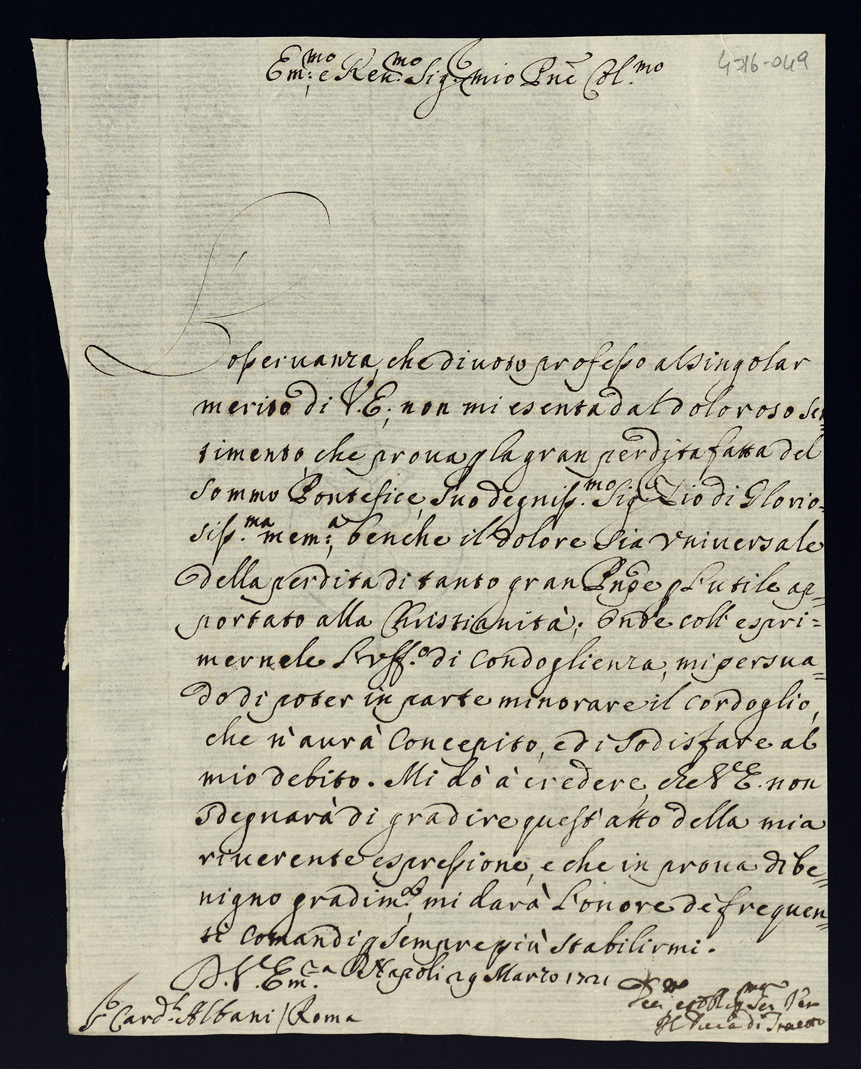 4-16-049
Em:mo e Reu:mo Sig.r mio Pne Col.mo
L'osseruanza, che diuoto professo al singolar
merito di V.E. non mi esenta dal doloroso sen=
timento, che proua p la gran perdita fatta del
Sommo Pontefice, suo degniss.mo Sig.r Zio di Glorio=
siss.ma mem:a, benche il dolore sia vniuersale
della perdita di tanto gran Pnpe p l'utile ap=
portato alla Christianità; Onde coll' espri=
mernele l'vff.o di Condoglienza, mi persua=
do di poter in parte minorare il cordoglio,
che n'aurà concepito, e di sodisfare al
mio debito. Mi dò à credere, che V.E. non
sdegnarà di gradire quest'atto della mia
riuerente espressione, e che in proua di be=
nigno gradim.to mi darà l'onore de frequen=
ti comandi p sempre più stabilirmi.
D.V. Em.za Napoli 29 Marzo 1721
S.r Card.l Albani / Roma
Ser Ver
Il Duca di Traetto